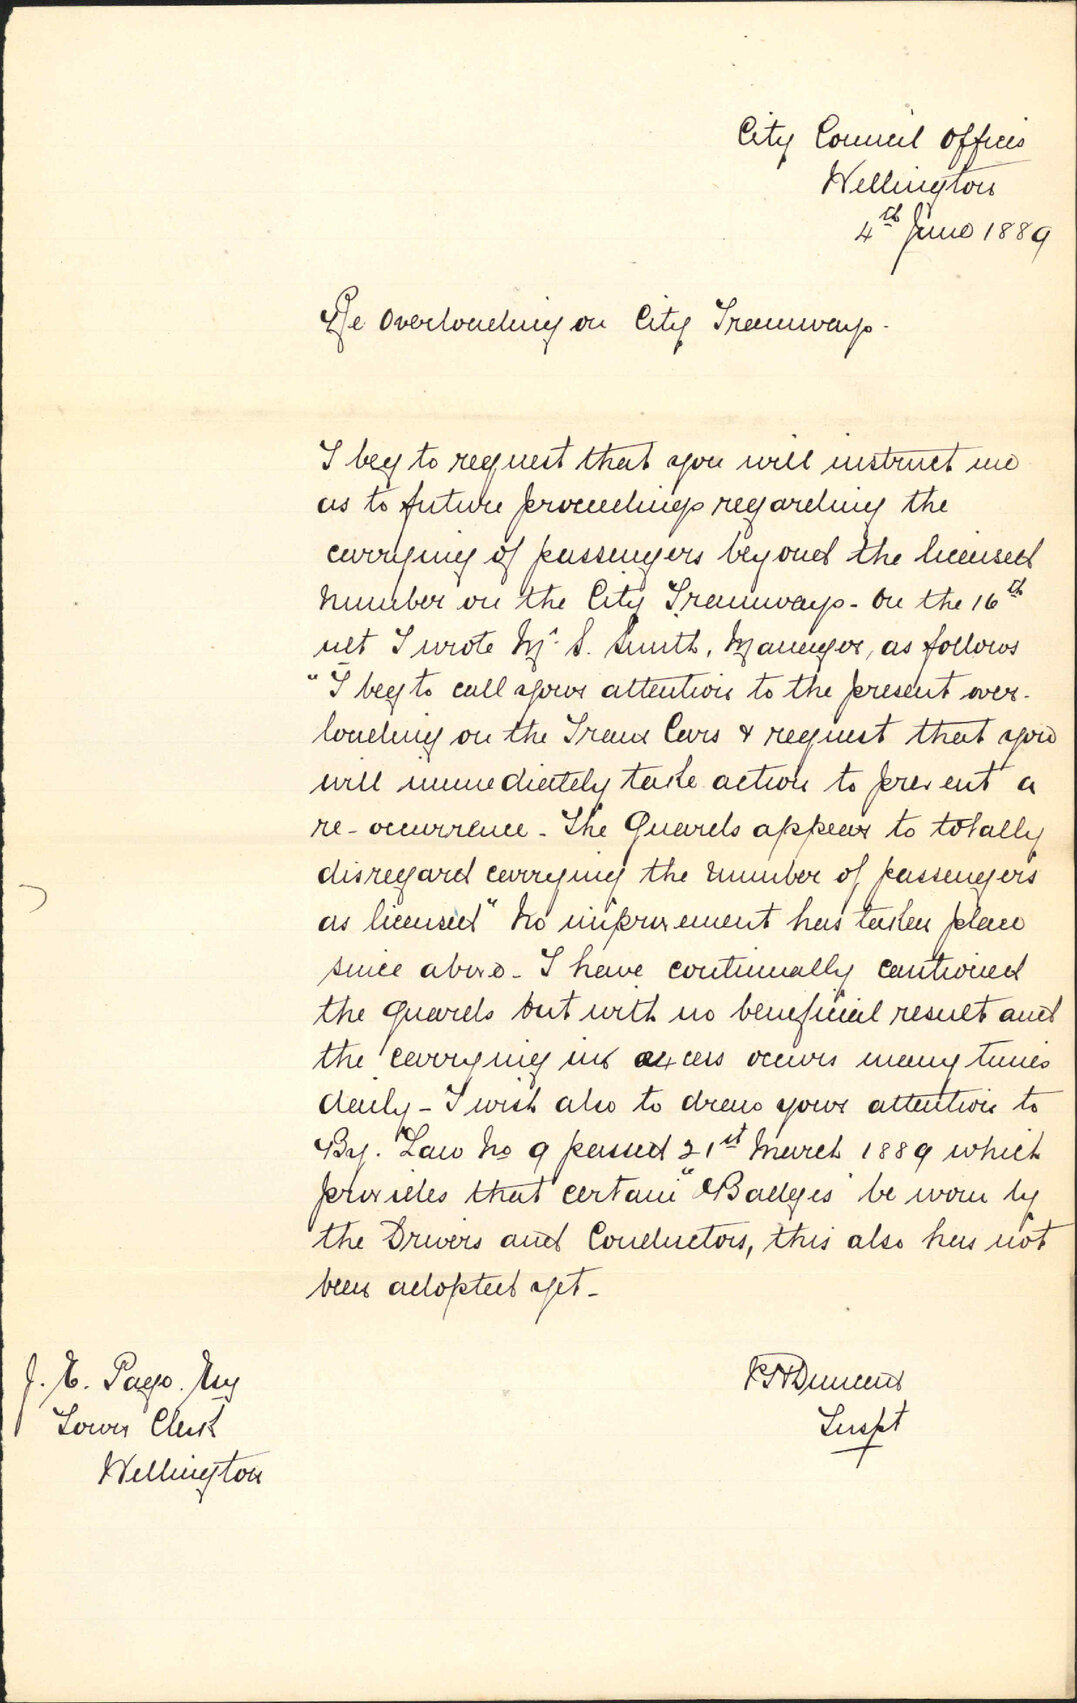 City Council Offices
Wellington
4th June 1889
Re Overloading on City Tramways.
I beg to request that you will instruct me
as to future proceedings regarding the
carrying of passengers beyond the licensed
number on the City Tramways - On the 16th
ult I wrote Mr S. Smith, Manager, as follows
"I beg to call your attention to the present over-
loading on the Tram Cars & request that you
will immediately take action to prevent a
re-occurrence - The Guards appear to totally
disregard carrying the number of passengers
as licensed" No improvement has taken place
since above - I have continually cautioned
the Guards but with no beneficial result and
the carrying in excess occurs many times
daily - I wish also to draw your attention to
By. Law No 9 passed 21st March 1889 which
provides that certain "Badges" be worn by
the Drivers and Conductors, this also has not
been adopted yet -
J. E. Page. Esq
Town Clerk
Wellington
Duncan
Inspt